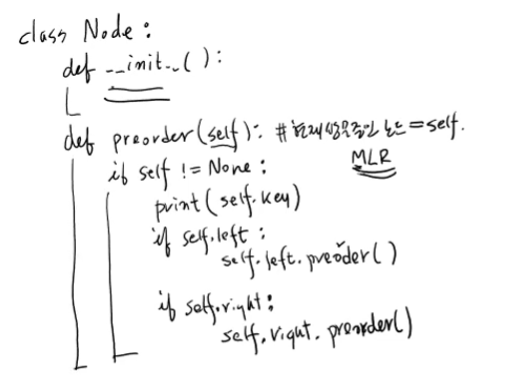 class Node:
def __init__():
def preorder(self): # 현재 방문중인 노드 = self.
MLR
if self != None:
print(self.key)
if self.left:
self.left.preoder()
if self.right:
self.right.preorder()